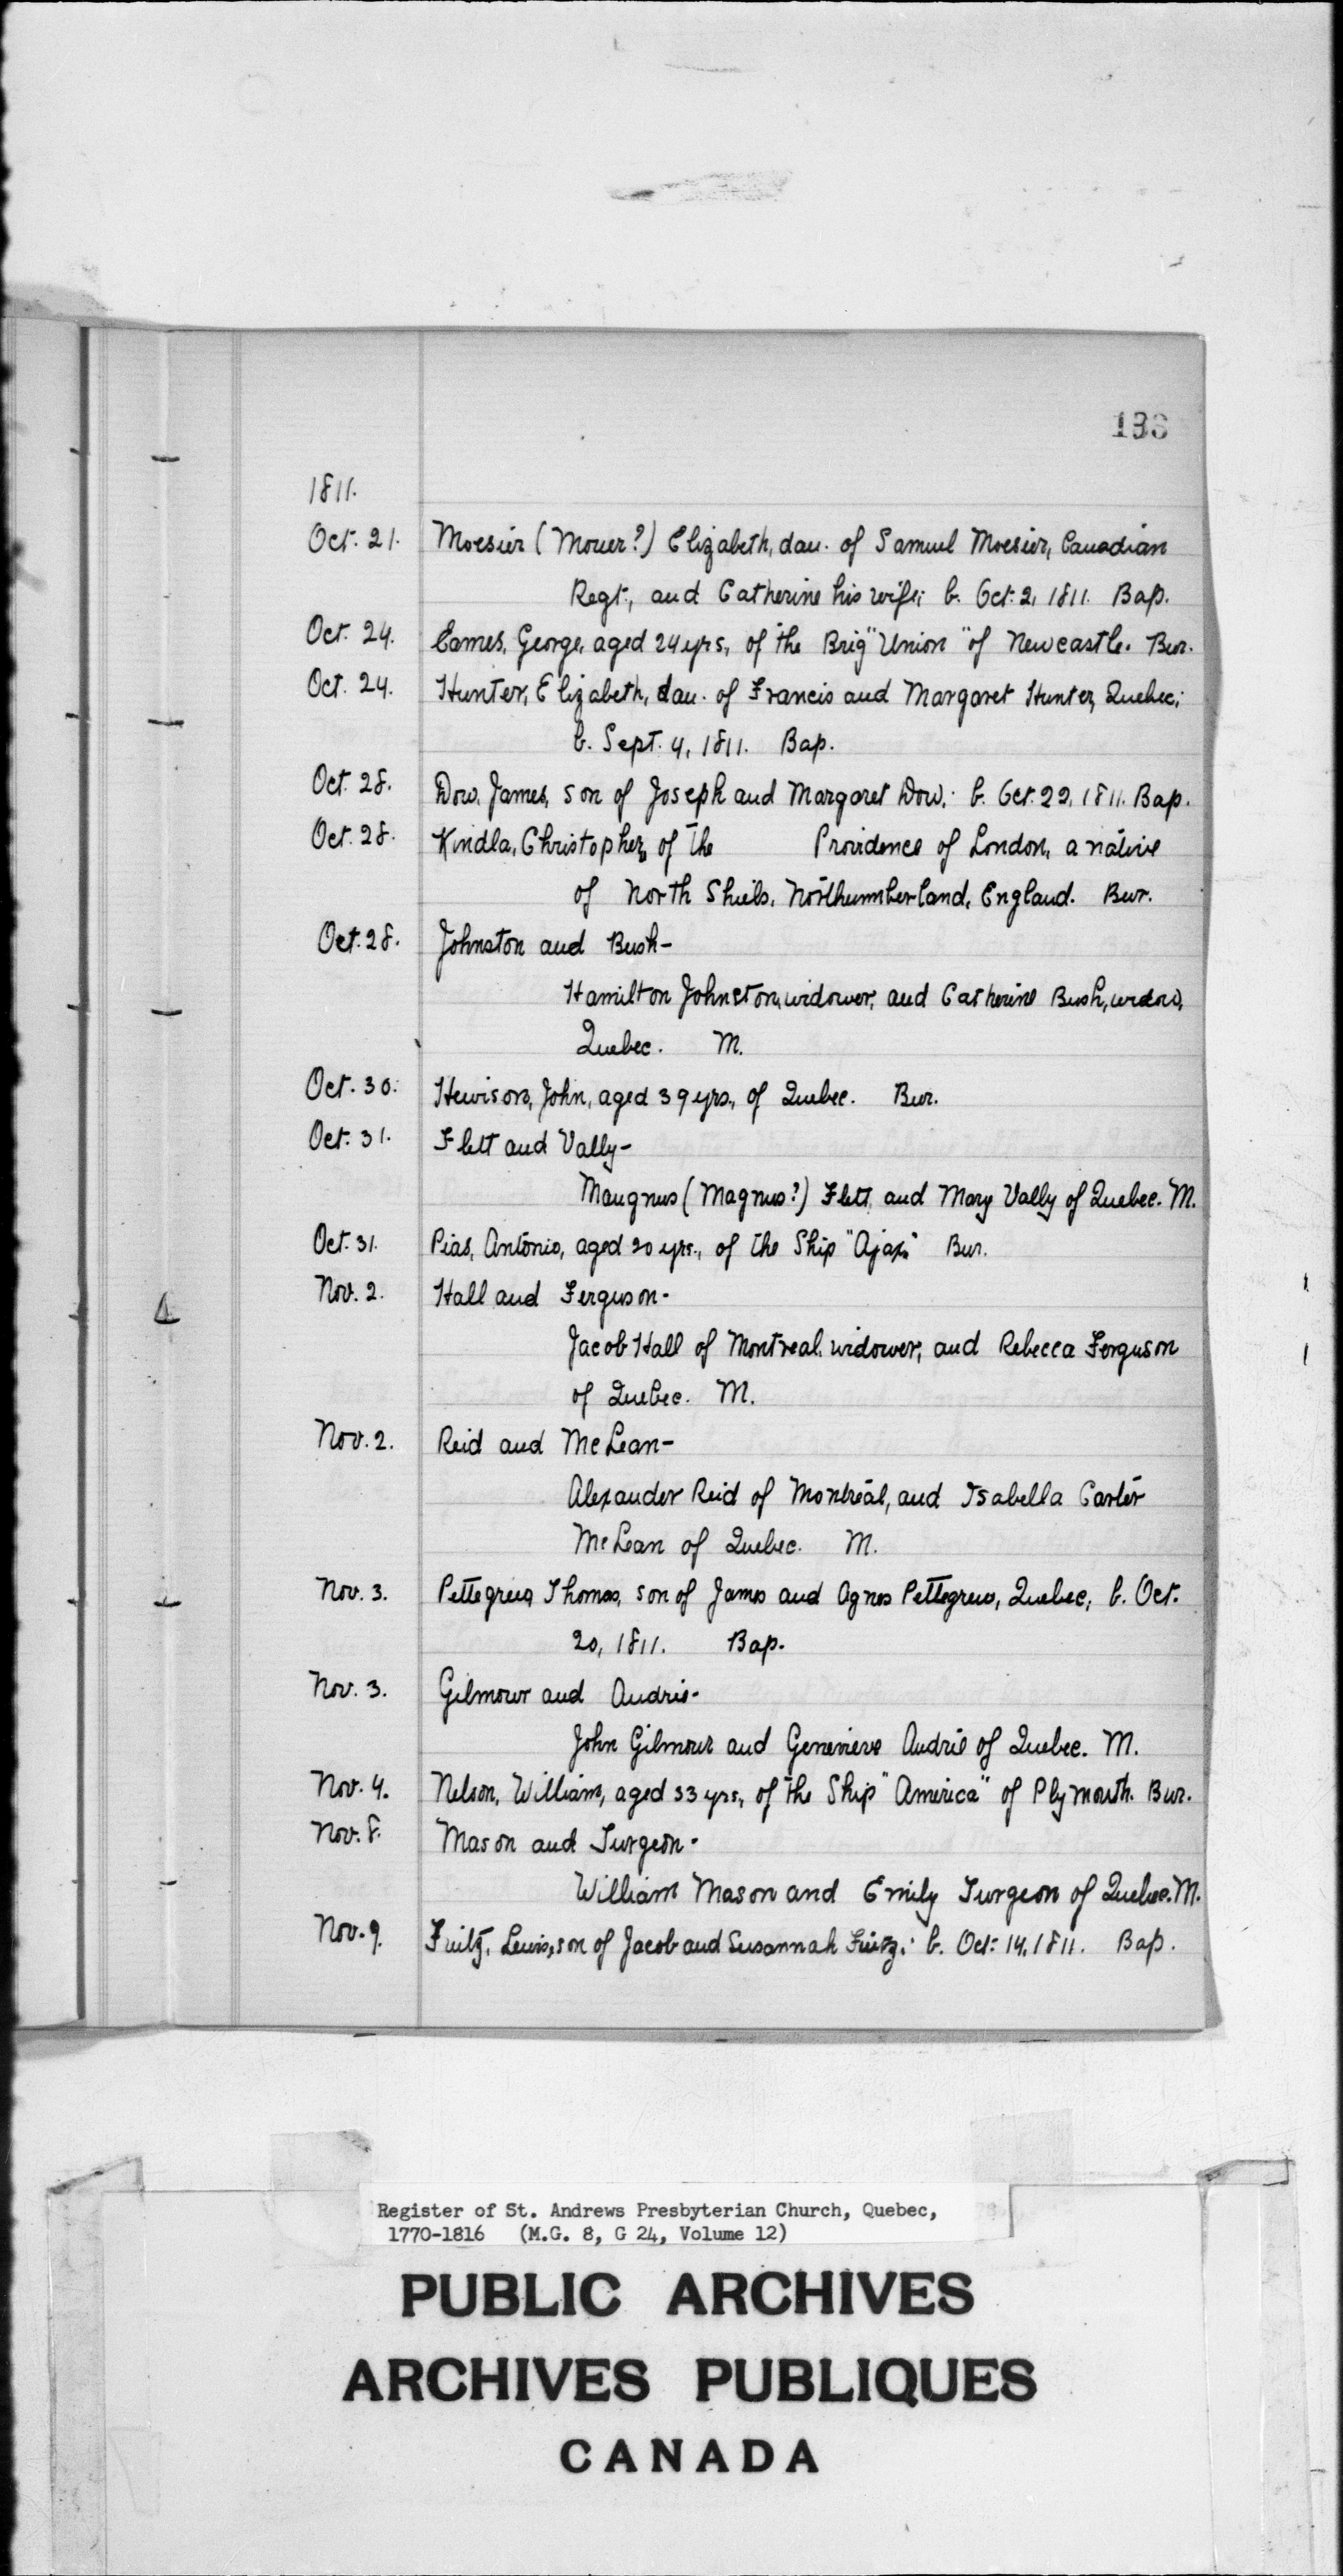 1811.
Oct. 21. Moesier (Mouer?) Elizabeth, dau. of Samuel Moesier, Canadian
Regt., and Catherine his wife; b. Oct. 2, 1811. Bap.
Oct. 24. Eames, George, aged 24 yrs, of the Brig "Union" of Newcastle. Bur.
Oct. 24. Hunter, Elizabeth, dau. of Francis and Margaret Hunter, Quebec;
b. Sept. 4, 1811. Bap.
Oct. 28. Dow, James, son of Joseph and Margaret Dow; b. Oct. 22, 1811. Bap.
Oct. 28. Kindla, Christopher, of the Providence of London, a native
of North Shiels, Northumberland, England. Bur.
Oct. 28. Johnston and Bush-
Hamilton Johnston, widower, and Catherine Bush, widow,
Quebec. M.
Oct. 30. Hewison, John, aged 39 yrs., of Quebec. Bur.
Oct. 31. Flett and Vally-
Maugnus (Magnus?) Flett and Mary Vally of Quebec. M.
Oct. 31. Pias, Antonio, aged 20 yrs., of the Ship "Ajax" Bur.
Nov. 2. Hall and Ferguson-
Jacob Hall of Montreal, widower, and Rebecca Ferguson
of Quebec. M.
Nov. 2. Reid and McLean-
Alexander Reid of Montreal, and Isabella Carter
McLean of Quebec. M.
Nov. 3. Pettegrew, Thomas, son of James and Agnes Pettegrew, Quebec; b. Oct.
20, 1811. Bap.
Nov. 3. Gilmour and Audrie-
John Gilmour and Genevieve Audrie of Quebec. M.
Nov. 4. Nelson, William, aged 33 yrs., of the Ship "America" of Plymouth. Bur.
Nov. 8. Mason and Turgeon-
William Mason and Emily Turgeon of Quebec. M.
Nov. 9. Fuitz, Lewis, son of Jacob and Susannah Fuitz; b. Oct. 14, 1811. Bap.
Register of St. Andrews Presbyterian Church, Quebec,
1770-1816 (M.G. 8, G 24, Volume 12)
PUBLIC ARCHIVES
ARCHIVES PUBLIQUES
CANADA